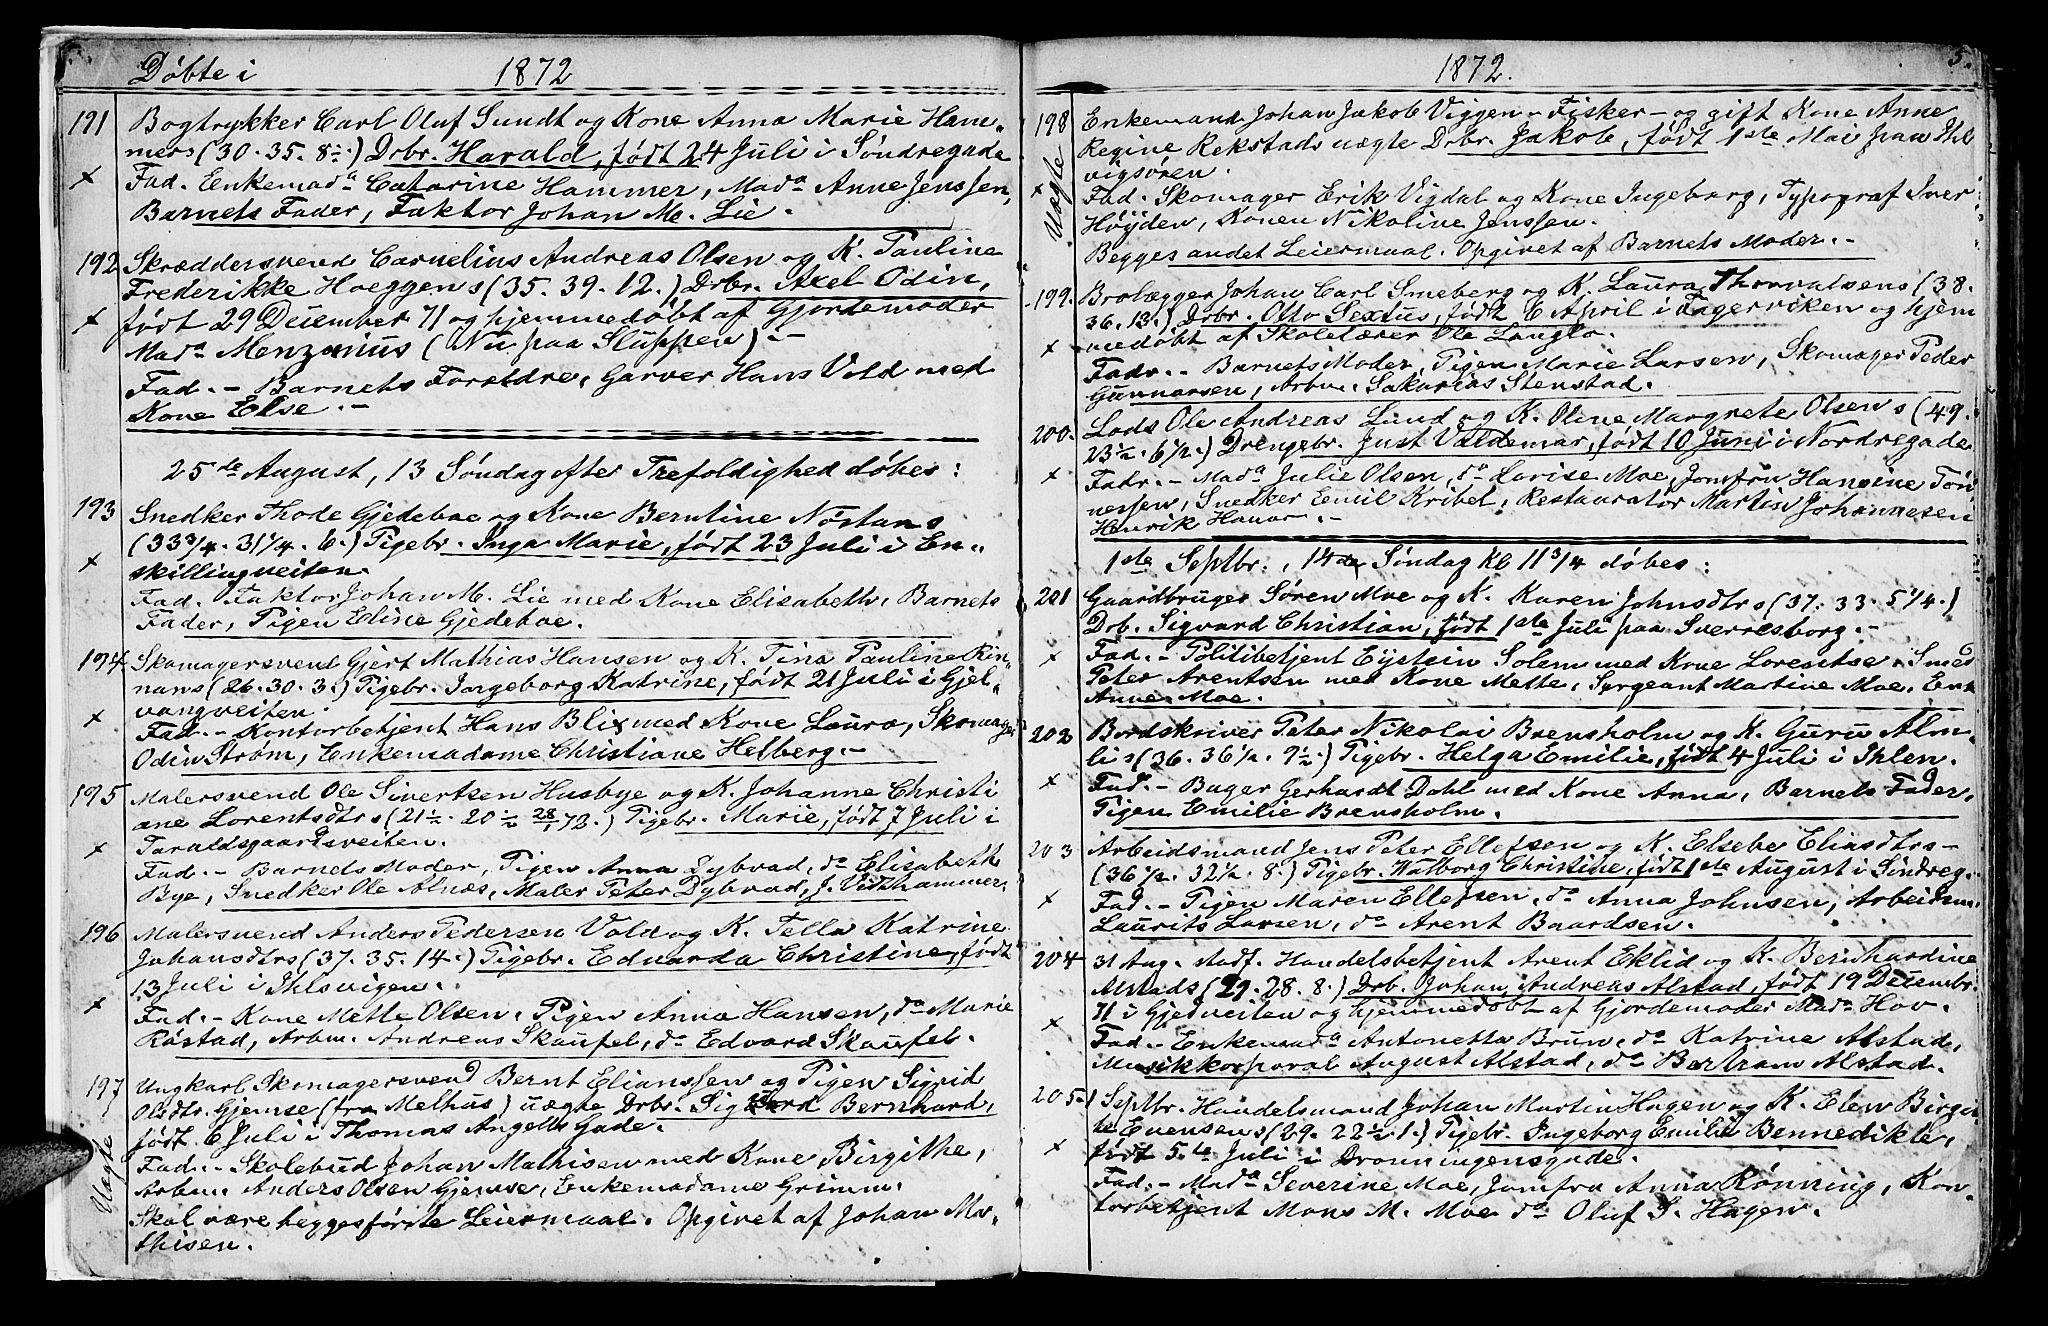 Døbte i 1872
191 Bogtrykker Carl Oluf Sundt og Kone Anna Marie Ham„
mers (30. 35. 8½.) Drbr. Harald, født 24 Juli i Søndregade
x Fad. Enkemadᵃ Catarine Hammer, Madᵃ Anne Jenssen,
Barnets Fader, Faktor Johan M. Lie.
192 Skræddersvend Carnelius Andreas Olsen og K. Pauline
Frederikke Hoeggens (35. 39. 12.) Drbr. Axel Odin,
x født 29 December 71 og hjemmedøbt af Gjordemoder
Madᵃ Menzonius (Nu paa Sluppen) –
Fad. – Barnets Forældre, Garver Hans Vold med
Kone Else. –
25de August, 13 Søndag efter Trefoldighed døbes:
193 Snedker Thode Gjedeboe og Kone Berntine Nøstans
(33¾. 31¼. 6.) Pigebr. Inga Marie, født 23 Juli i En„
x skillingveiten.
Fad. Faktor Johan M. Lie med Kone Elisabeth, Barnets
Fader, Pigen Eline Gjedeboe.
194 Skomagersvend Gjert Mathias Hansen og K. Tina Pauline Rin„
nans (26. 30. 3.) Pigebr. Ingeborg Katrine, født 21 Juli i Gjel„
x vangveiten.
Fad. – Kontorbetjent Hans Blix med Kone Laura, Skomager
Odin Strøm, Enkemadame Christiane Helberg. –
195 Malersvend Ole Sivertsen Husbye og K. Johanne Christi
ane Lorentsdtrs (21½. 20½ 28/1 72.) Pigebr. Marie, født 7 Juli i
x Taraldsgaardsveiten.
Fad. – Barnets Moder, Pigen Anna Dybvad, dᵒ Elisabeth
Bye, Snedker Ole Alnæs, Maler Peter Dybvad, J. Vidthammer,
196 Malersvend Anders Pedersen Vold og K. Tella Katrine
Johansdtrs (37. 35. 14.) Pigebr. Edvarda Christine, født
13 Juli i Ihlsvigen.
x Fad. – Kone Mette Olsen, Pigen Anna Hansen, dᵒ Marie
Røstad, Arbm. Andreas Skaufel, dᵒ Edvard Skaufel.
197 Ungkarl Skomagersvend Bernt Elianssen og Pigen Sigrid
Olsdtr. Gjemse (fra Melhus) uægte Drbr. Sigvard Bernhard,
født 6 Juli i Thomas Angells Gade.
Uægte Fad. – Skolebud Johan Mathisen med Kone Birgithe,
Arbm. Anders Olsen Gjemse, Enkemadame Grimm.
Skal være begges første Leiermaal. Opgivet af Johan Ma„
thisen.
1872. 5.
198 Enkemand Johan Jakob Viggen – Fisker – og gift Kone Anne
Regine Rekstads uægte Drbr. Jakob, født 1ste Mai paa Ihl
vigsøren.
x Uægte Fad. Skomager Erik Vigdal og Kone Ingeborg, Typograf Iver
Høyden, Konen Nikoline Jenssen.
Begges andet Leiermaal. Opgivet af Barnets Moder. –
199. Brolægger Johan Carl Smeberg og K. Laura Thorvalsens (38.
36. 13.) Drbr. Otto Sextus, født 6 April i Fagerviken og hjem
x medøbt af Skolelærer Ole Langlo.
Fadr. – Barnets Moder, Pigen Marie Larsen, Skomager Peder
Gunnarsen, Arbm. Sakarias Stenstad.
200. Lods Ole Andreas Lund og K. Oline Margrete Olsens (49.
23½. 6½.) Drengebr. Just Valdemar, født 10 Juni i Nordregade
x Fadr. – Madᵃ Julie Olsen, dᵒ Lovise Moe, Jomfru Hansine Tøn
nessen, Snedker Emil Kribel, Restauratør Martin Johannesen
Henrik Hauar. –
1ste Septbr., 14de Søndag kl 11¾ døbes:
201 Gaardbruger Søren Moe og K. Karen Johnsdtrs (37. 33. 5¼.)
Drb. Sigvard Christian, født 1ste Juli paa Sverresborg. –
x Fad. – Politibetjent Eystein Solem med Kone Lorentse, Smed
Peter Arentsen med Kone Mette, Sergeant Martine Moe, Enk
Anne Moe.
202 Bordskriver Peter Nikolai Brensholm og K. Guru Alm„
lis (36. 36½. 9½.) Pigebr. Helga Emilie, født 4 Juli i Ihlen.
x Fad. – Bager Gerhardt Dahl med Kone Anna, Barnets Fader,
Pigen Emilie Brensholm.
203 Arbeidsmand Jens Peter Ellefsen og K. Elsebe Eliasdtrs –
(36½. 32½. 8.) Pigebr. Walborg Christine, født 1ste August i Søndreg.
x Fad. – Pigen Maren Ellefsen, dᵒ Anna Johnsen, Arbeidsm.
Laurits Larsen, dᵒ Arent Baardsen.
204 31 Aug. stadf. Handelsbetjent Arent Eklid og K. Bernhardine
Alstads (29. 28. 8.) Drb. Johan Andreas Alstad, født 19 Decembr.
71 i Gjedveiten og hjemmedøbt af Gjordemoder Madᵃ Hov.
x Fad. – Enkemadᵃ Antonetta Bruun, dᵒ Katrine Alstad,
Musikkorporal August Alstad, dᵒ Bertram Alstad.
205. 1 Septbr. Handelsmand Johan Martin Hagen og K. Elen Birgit
te Evensens (29. 22½. 1.) Pigebr. Ingeborg Emilie Bennedikte,
x født 5.te Juli i Dronningensgade.
Fad. – Madᵃ Severine Moe, Jomfru Anna Rønning, Kon„
torbetjent Mons M. Moe dᵒ Oluf S. Hagen.